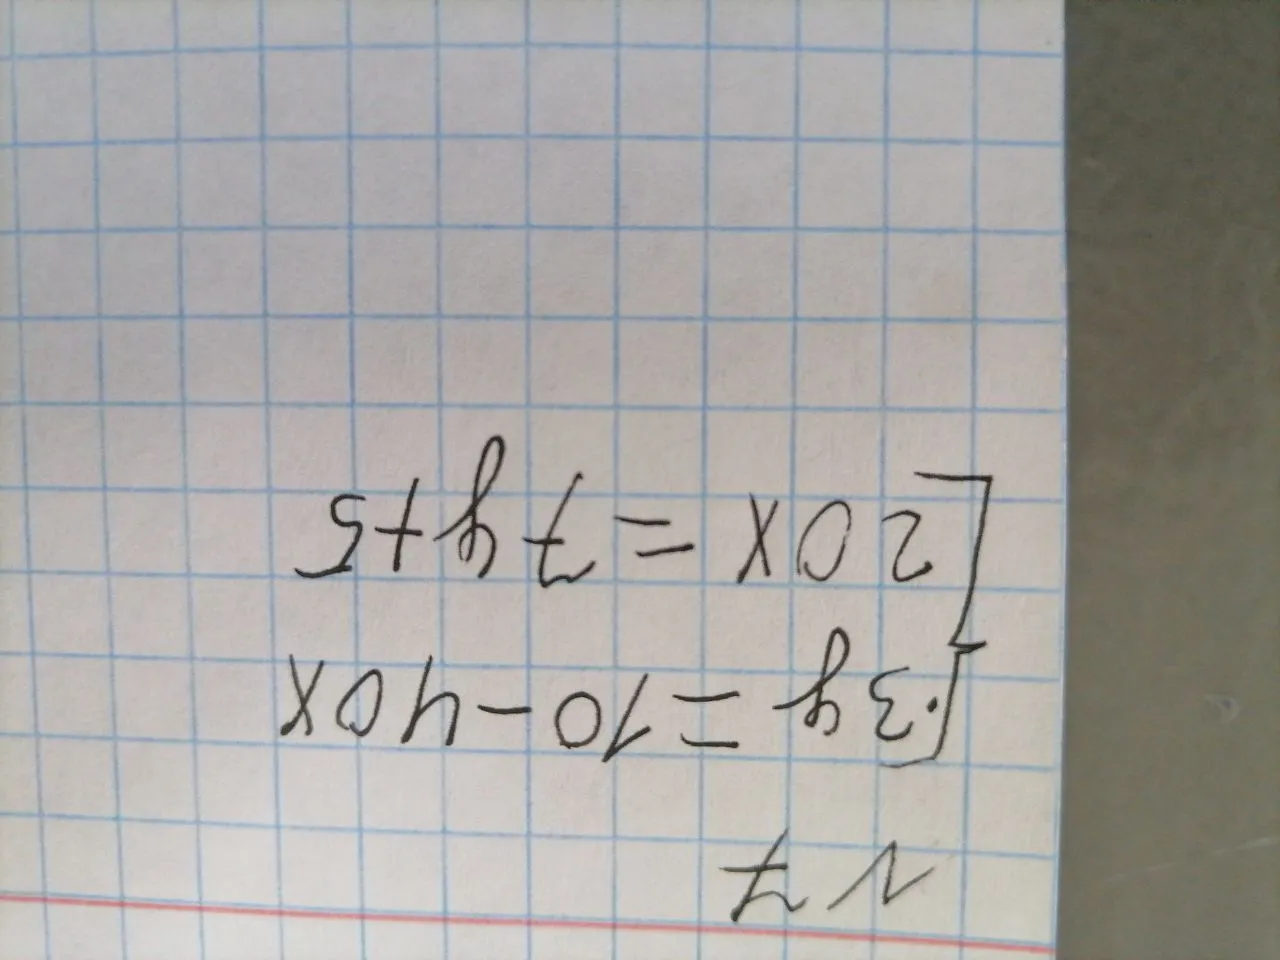 N 7
{3y = 10 - 40x
20x = 7y + 5